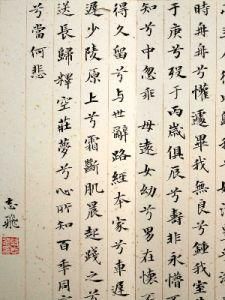 時舟舟兮懼遽畢我無良兮鍾我室
于庚兮歿于丙歲俱辰兮壽非永懵
知兮中忽乖毋遠女幼兮男在懷
得久留兮与世辭路經本家兮車遲
遲少陵原上兮霜斷肌晨起踐之兮
送長歸釋空莊夢兮心所知百年同
兮當何悲
志飛